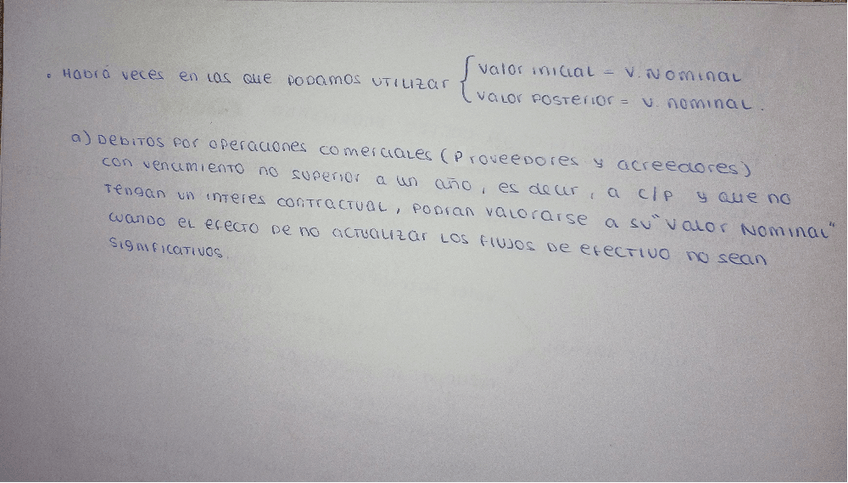 . Habrá veces en las que podamos utilizar { valor inicial = v. Nominal
valor posterior = v. nominal.
a) Debitos por operaciones comerciales (Proveedores y acreedores)
con vencimiento no superior a un año, es decir, a c/p y que no
tengan un interes contractual, podran valorarse a su "Valor Nominal"
cuando el efecto de no actualizar los flujos de efectivo no sean
significativos.